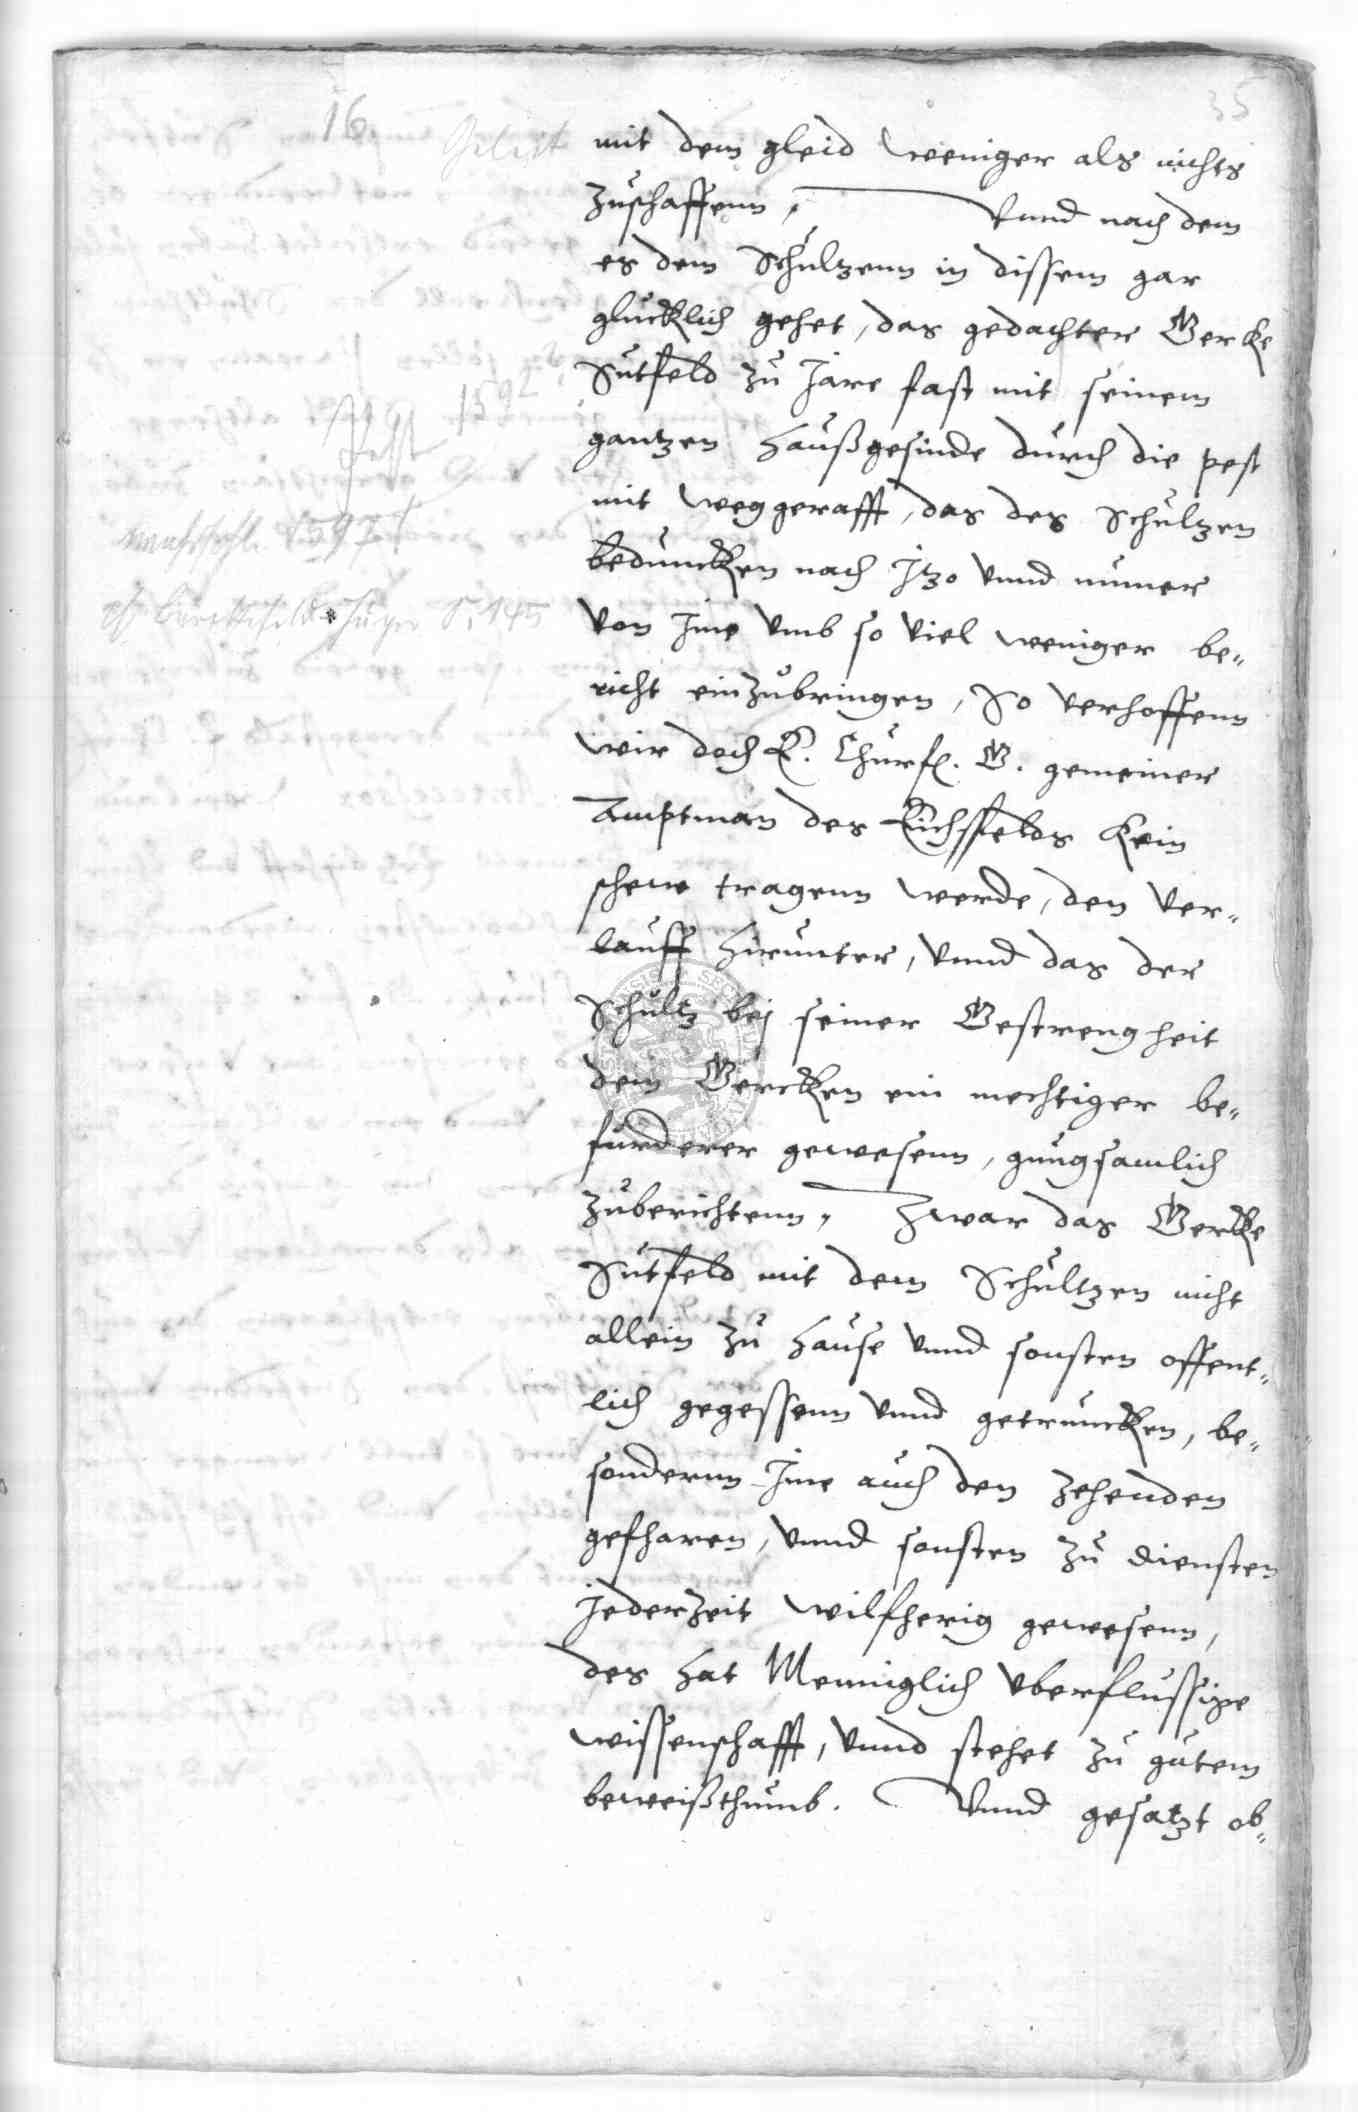 16
35
Geleit
mit dem gleid weniger als nichts
zuschaffenn, Vnnd nach dem
es dem Schultzenn in dissem gar
glucklich gehet, das gedachter Gercke
Sutfeld zu Jare fast mit seinem
gantzen haußgesinde durch die pest
mit weggerafft, das des Schultzen
beduncken nach Jtzo vnnd numer
von Jme vmb so viel weniger be-
richt einzubringen, So verhoffenn
wir doch E. Churf. G. gemeiner
Amptman des Eichsfelds kein
schew tragenn werde, den ver-
lauff hirunter, vnnd das der
Schultz bej seiner Gestrengheit
dem Gercken ein mechtiger be-
furderer gewesenn, gnugsamlich
zuberichtenn, Zwar das Gercke
Sutfeld mit dem Schultzen nicht
allein zu hause vnnd sonsten offent-
lich gegessenn vnnd getruncken, be-
sondernn Jme auch den zehenden
gefharen, vnnd sonsten zu diensten
jederzeit wilfherig gewesenn,
des hat Menniglich vberflussige
wissenschafft, vnnd stehet zu gutem
beweißthumb. Vnnd gesatzt ob-
1592
Pest
1597!
S. 145